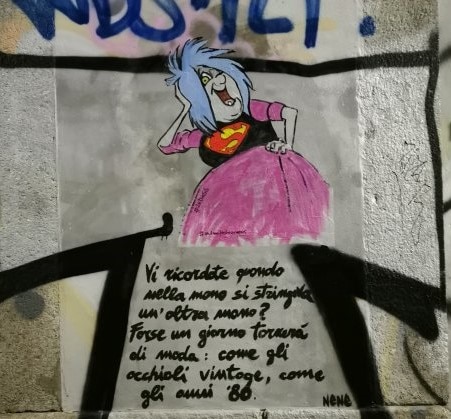 Vi ricordate quando
nella mano si stringeva
un'altra mano?
Forse un giorno tornerà
di moda: come gli
occhiali vintage, come
gli anni '80.
NeNe